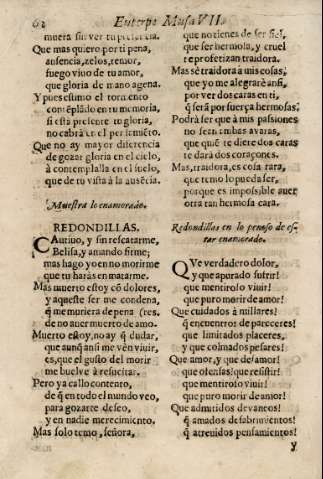 62 Euterpe Musa VII.
muera sin ver tu presencia.
Que mas quiero por ti pena,
ausencia, zelos, temor,
fuego vivo de tu amor,
que gloria de mano agena.
Y pues estimo el tormento
contẽplãdo en tu memoria,
si està presente tu gloria,
no cabrà en el pensamiẽto.
Que no ay mayor diferencia
de gozar gloria en el cielo,
à contemplalla en el suelo,
que de tu vista à la ausẽcia.
Muestra lo enamorado.
REDONDILLAS.
CAutiuo, y sin rescatarme,
Belisa, y amando firme;
mas hago yo en no morirme
que tu haràs en matarme.
Mas muerto estoy cõ dolores,
y aqueste ser me condena,
q̃ me muriera de pena
de no auer muerto de amo.
Muerto estoy, no ay q̃ dudar,
que aunq̃ ansi me vèn viuir,
es, que el gusto del morir
me buelve à resucitar.
Pero ya callo contento,
de q̃ en todo el mundo veo,
para gozarte deseo,
y en nadie merecimiento.
Mas solo temo, señora,
que no tienes de ser fiel,
que ser hermosa, y cruel
te profetizan traidora.
Mas sè traidora à mis cosas,
que yo me alegrarè ansi,
por ver dos caras en ti,
q̃ serà por fuerça hermosas.
Podrà ser que à mis pasiones
no sean ambas avaras,
que quiẽ te diere dos caras
te darà dos coraçones.
Mas, traidora, es cosa rara,
que temo lo pueda ser,
porque es imposible auer
otra tan hermosa cara.
Redondillas en lo penoso de estar enamorado.
QVe verdadero dolor,
y que apurado sufrir!
que mentiroso vivir!
que puro morir de amor!
Que cuidados à millares!
que encuentros de pareceres!
que limitados placeres,
y que colmados pesares!
Que amor, y que desamor!
que ofensas! que resistir!
que mentiroso vivir!
que puro morir de amor!
Que admitidos devaneos!
q̃ amados desabrimientos!
q̃ atrevidos pensamientos!
y